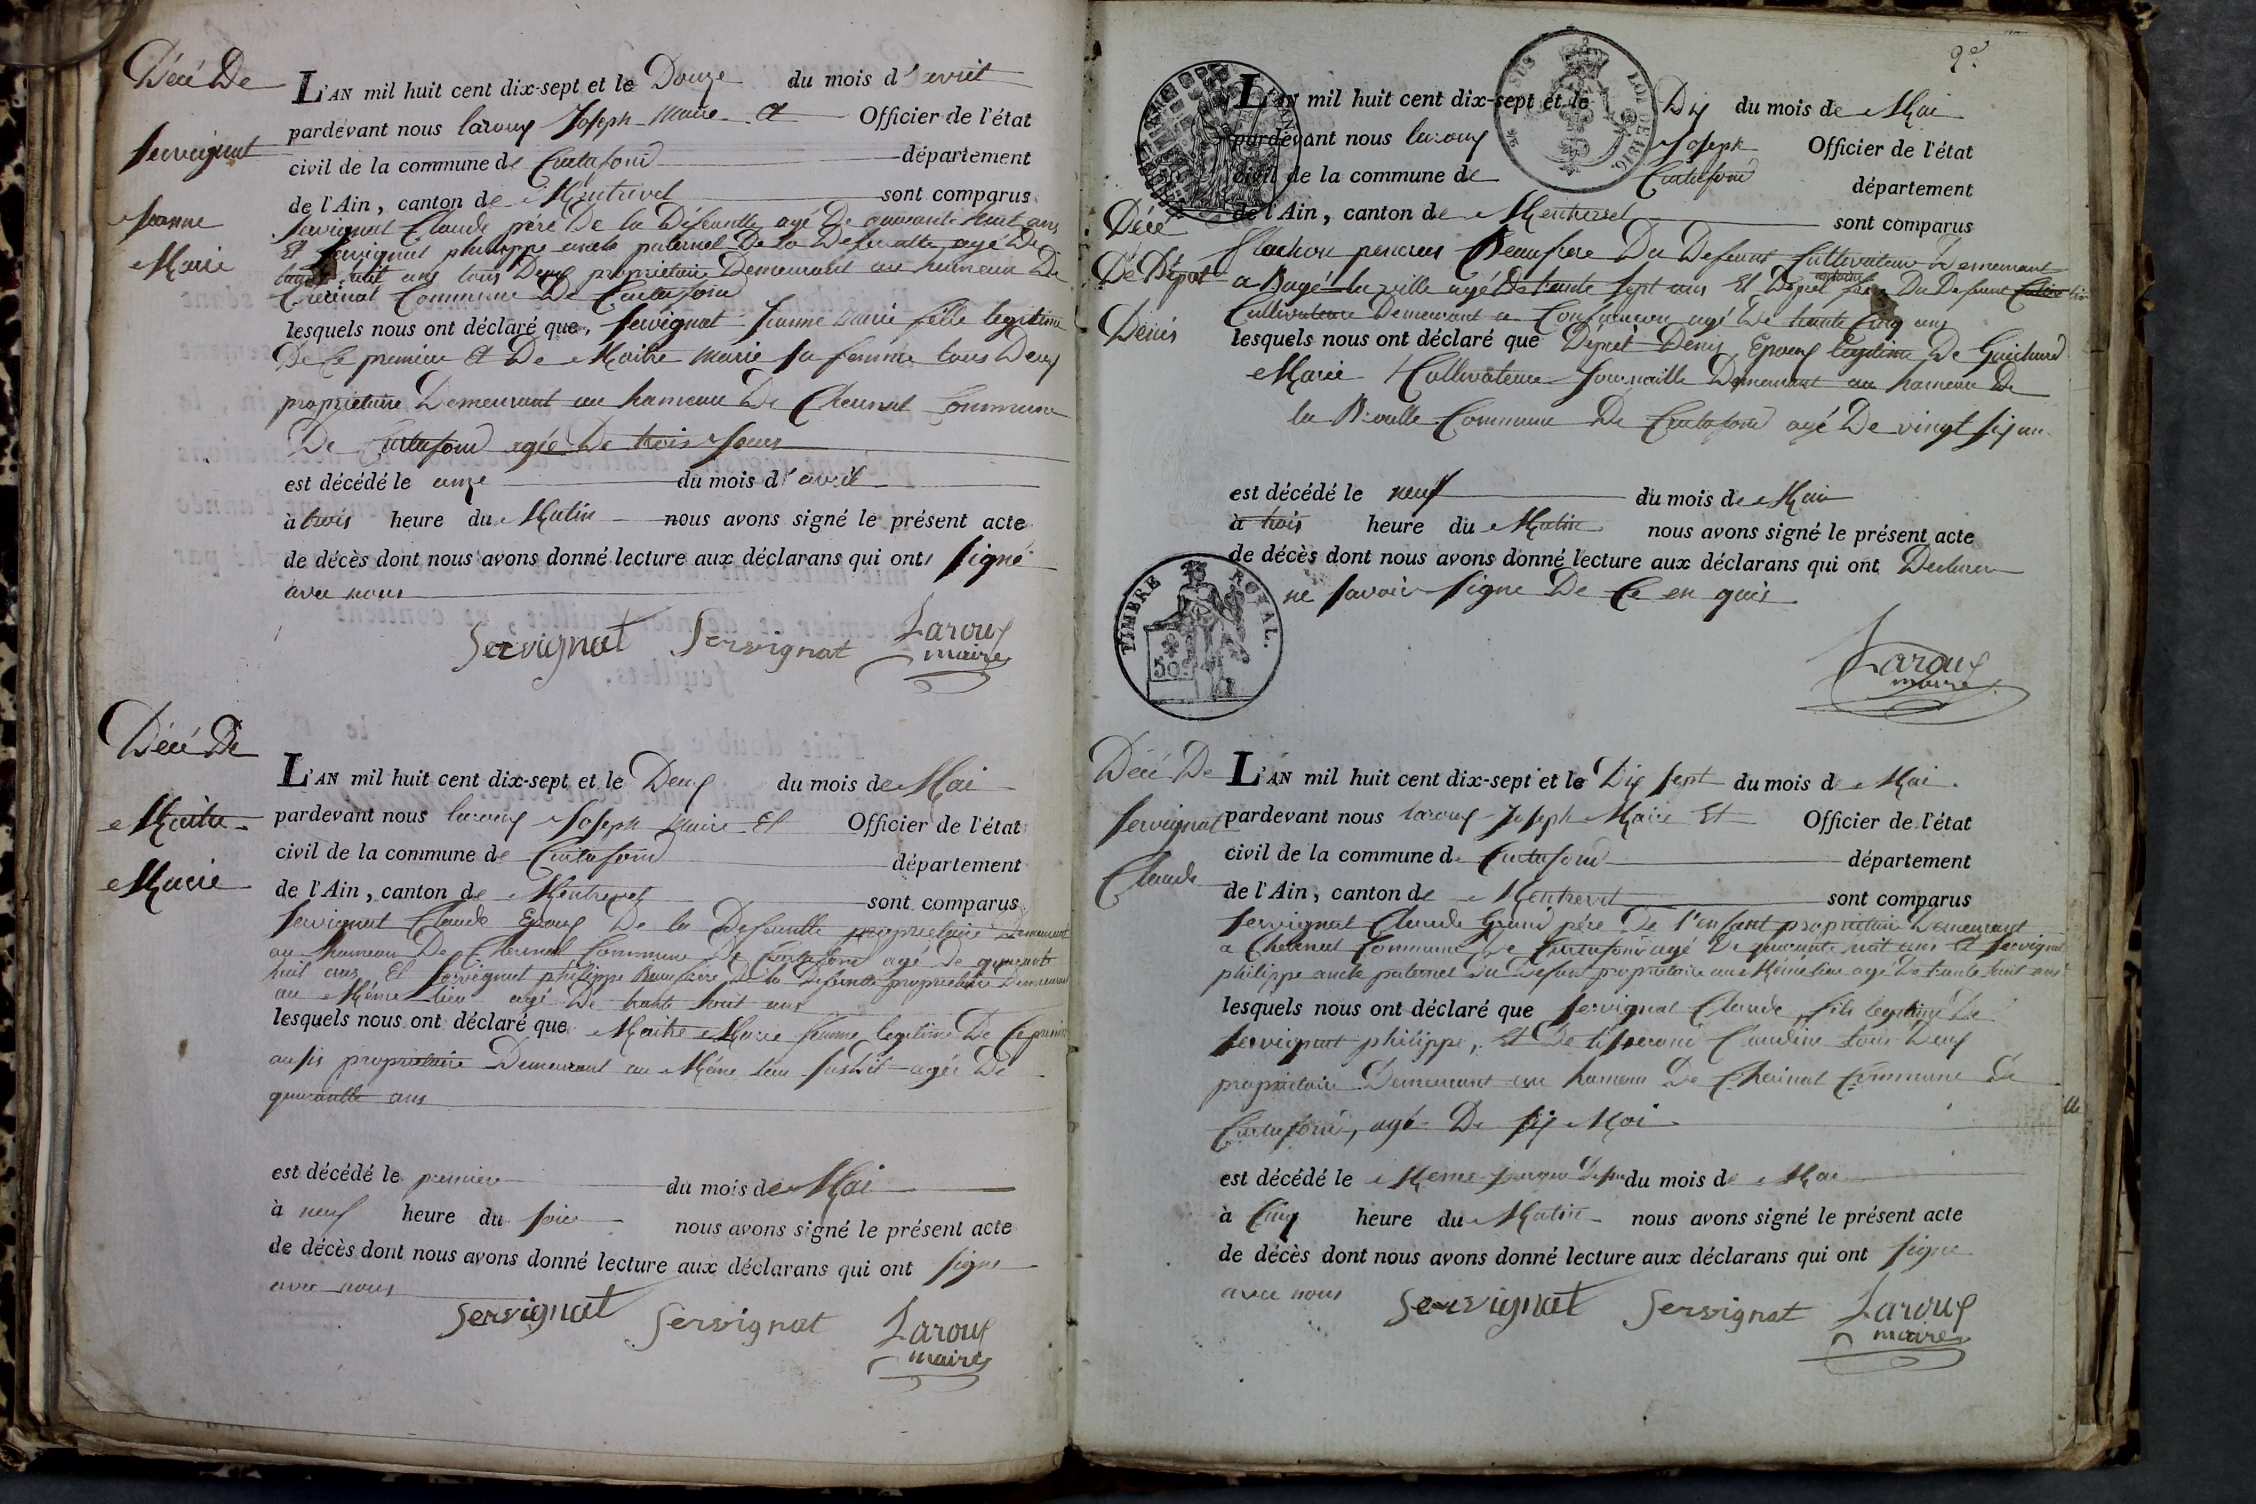 Décé De
Servignat
Jeanne
Marie
L'AN mil huit cent dix-sept et le Douze du mois d'avril
pardevant nous laroux Joseph maire et Officier de l'état
civil de la commune de Curtafond département
de l'Ain, canton de Montrevel sont comparus
Servignat Claude père De la Défeunte agé De quarante huit ans
Et Servignat philippe oncle paternel De la Defeunte agé De
huit ans tous Deux propriétaire Demeurant au hameau De
Cherinal Commune De Curtafond
lesquels nous ont déclaré que, Servignat Jeanne marie fille legitime
De Ce premier Et De Maitre marie sa femme tous Deux
propriétaire Demeurant au hameau De Commune
De Curtafond agée De trois Jours
est décédé le onze du mois d'avril
à trois heure du Matin nous avons signé le présent acte
de décès dont nous avons donné lecture aux déclarans qui ont signé
avec nous
Servignat Servignat Laroux
maire
Décé De
Maitre
Marie
L'AN mil huit cent dix-sept et le Deux du mois de Mai
pardevant nous laroux Joseph maire Et Officier de l'état
civil de la commune de Curtafond département
de l'Ain, canton de Montrevel sont comparus
Servignat Claude Epoux De la Defeunte propriétaire Demeurant
au hameau De Cherinal Commune De Curtafond agé De quarante
huit ans Et Servignat philippe Beaufrere De la Defeunte propriétaire Demeurant
au Même lieu agé De trante huit ans
lesquels nous ont déclaré que Maitre Marie femme legitime De Ce premier
propriétaire Demeurant au Même lieu susdit agée De
quarante ans
est décédé le premier du mois de Mai
à neuf heure du soir nous avons signé le présent acte
de décès dont nous avons donné lecture aux déclarans qui ont signe
avec nous
Servignat Servignat Laroux
maire
2e
Décé
De Dépret
Dénis
L'AN mil huit cent dix-sept et le Dix du mois de Mai
pardevant nous laroux Joseph Officier de l'état
civil de la commune de Curtafond département
de l'Ain, canton de Montrevel sont comparus
Beaufrere Du Defeunt Cultivateur Demeurant
a Bagé la ville agé De trante sept ans Et Dépret Du Defeunt
Cultivateur Demeurant a Confrançon agé De trante Cinq ans
lesquels nous ont déclaré que Dépret Denis Epoux legitime De Guichard
Marie Cultivateur Demeurant au hameau De
la Commune De Curtafond agé De vingt six ans
est décédé le neuf du mois de Mai
à trois heure du Matin nous avons signé le présent acte
de décès dont nous avons donné lecture aux déclarans qui ont Declarer
ne savoir signe De Ce en quis
TIMBRE ROYAL.
50c
Laroux
maire
Décé De
Servignat
Claude
L'AN mil huit cent dix-sept et le Dix sept du mois de Mai
pardevant nous laroux Joseph Maire Et Officier de l'état
civil de la commune de Curtafond département
de l'Ain, canton de Montrevel sont comparus
Servignat Claude Grand père De l'enfant propriétaire Demeurant
a Cherinal Commune De Curtafond agé De quarante huit ans Et Servignat
philippe oncle paternel Du Defunt propriétaire au Même lieu agé De trante huit ans
lesquels nous ont déclaré que Servignat Claude fils legitime De
Servignat philippe, Et De Claudine tous Deux
propriétaire Demeurant au hameau De Cherinal Commune De
Curtafond, agé De six Moi
est décédé le Meme jour du mois de Mai
à Cinq heure du Matin nous avons signé le présent acte
de décès dont nous avons donné lecture aux déclarans qui ont signe
avec nous
Servignat Servignat Laroux
maire